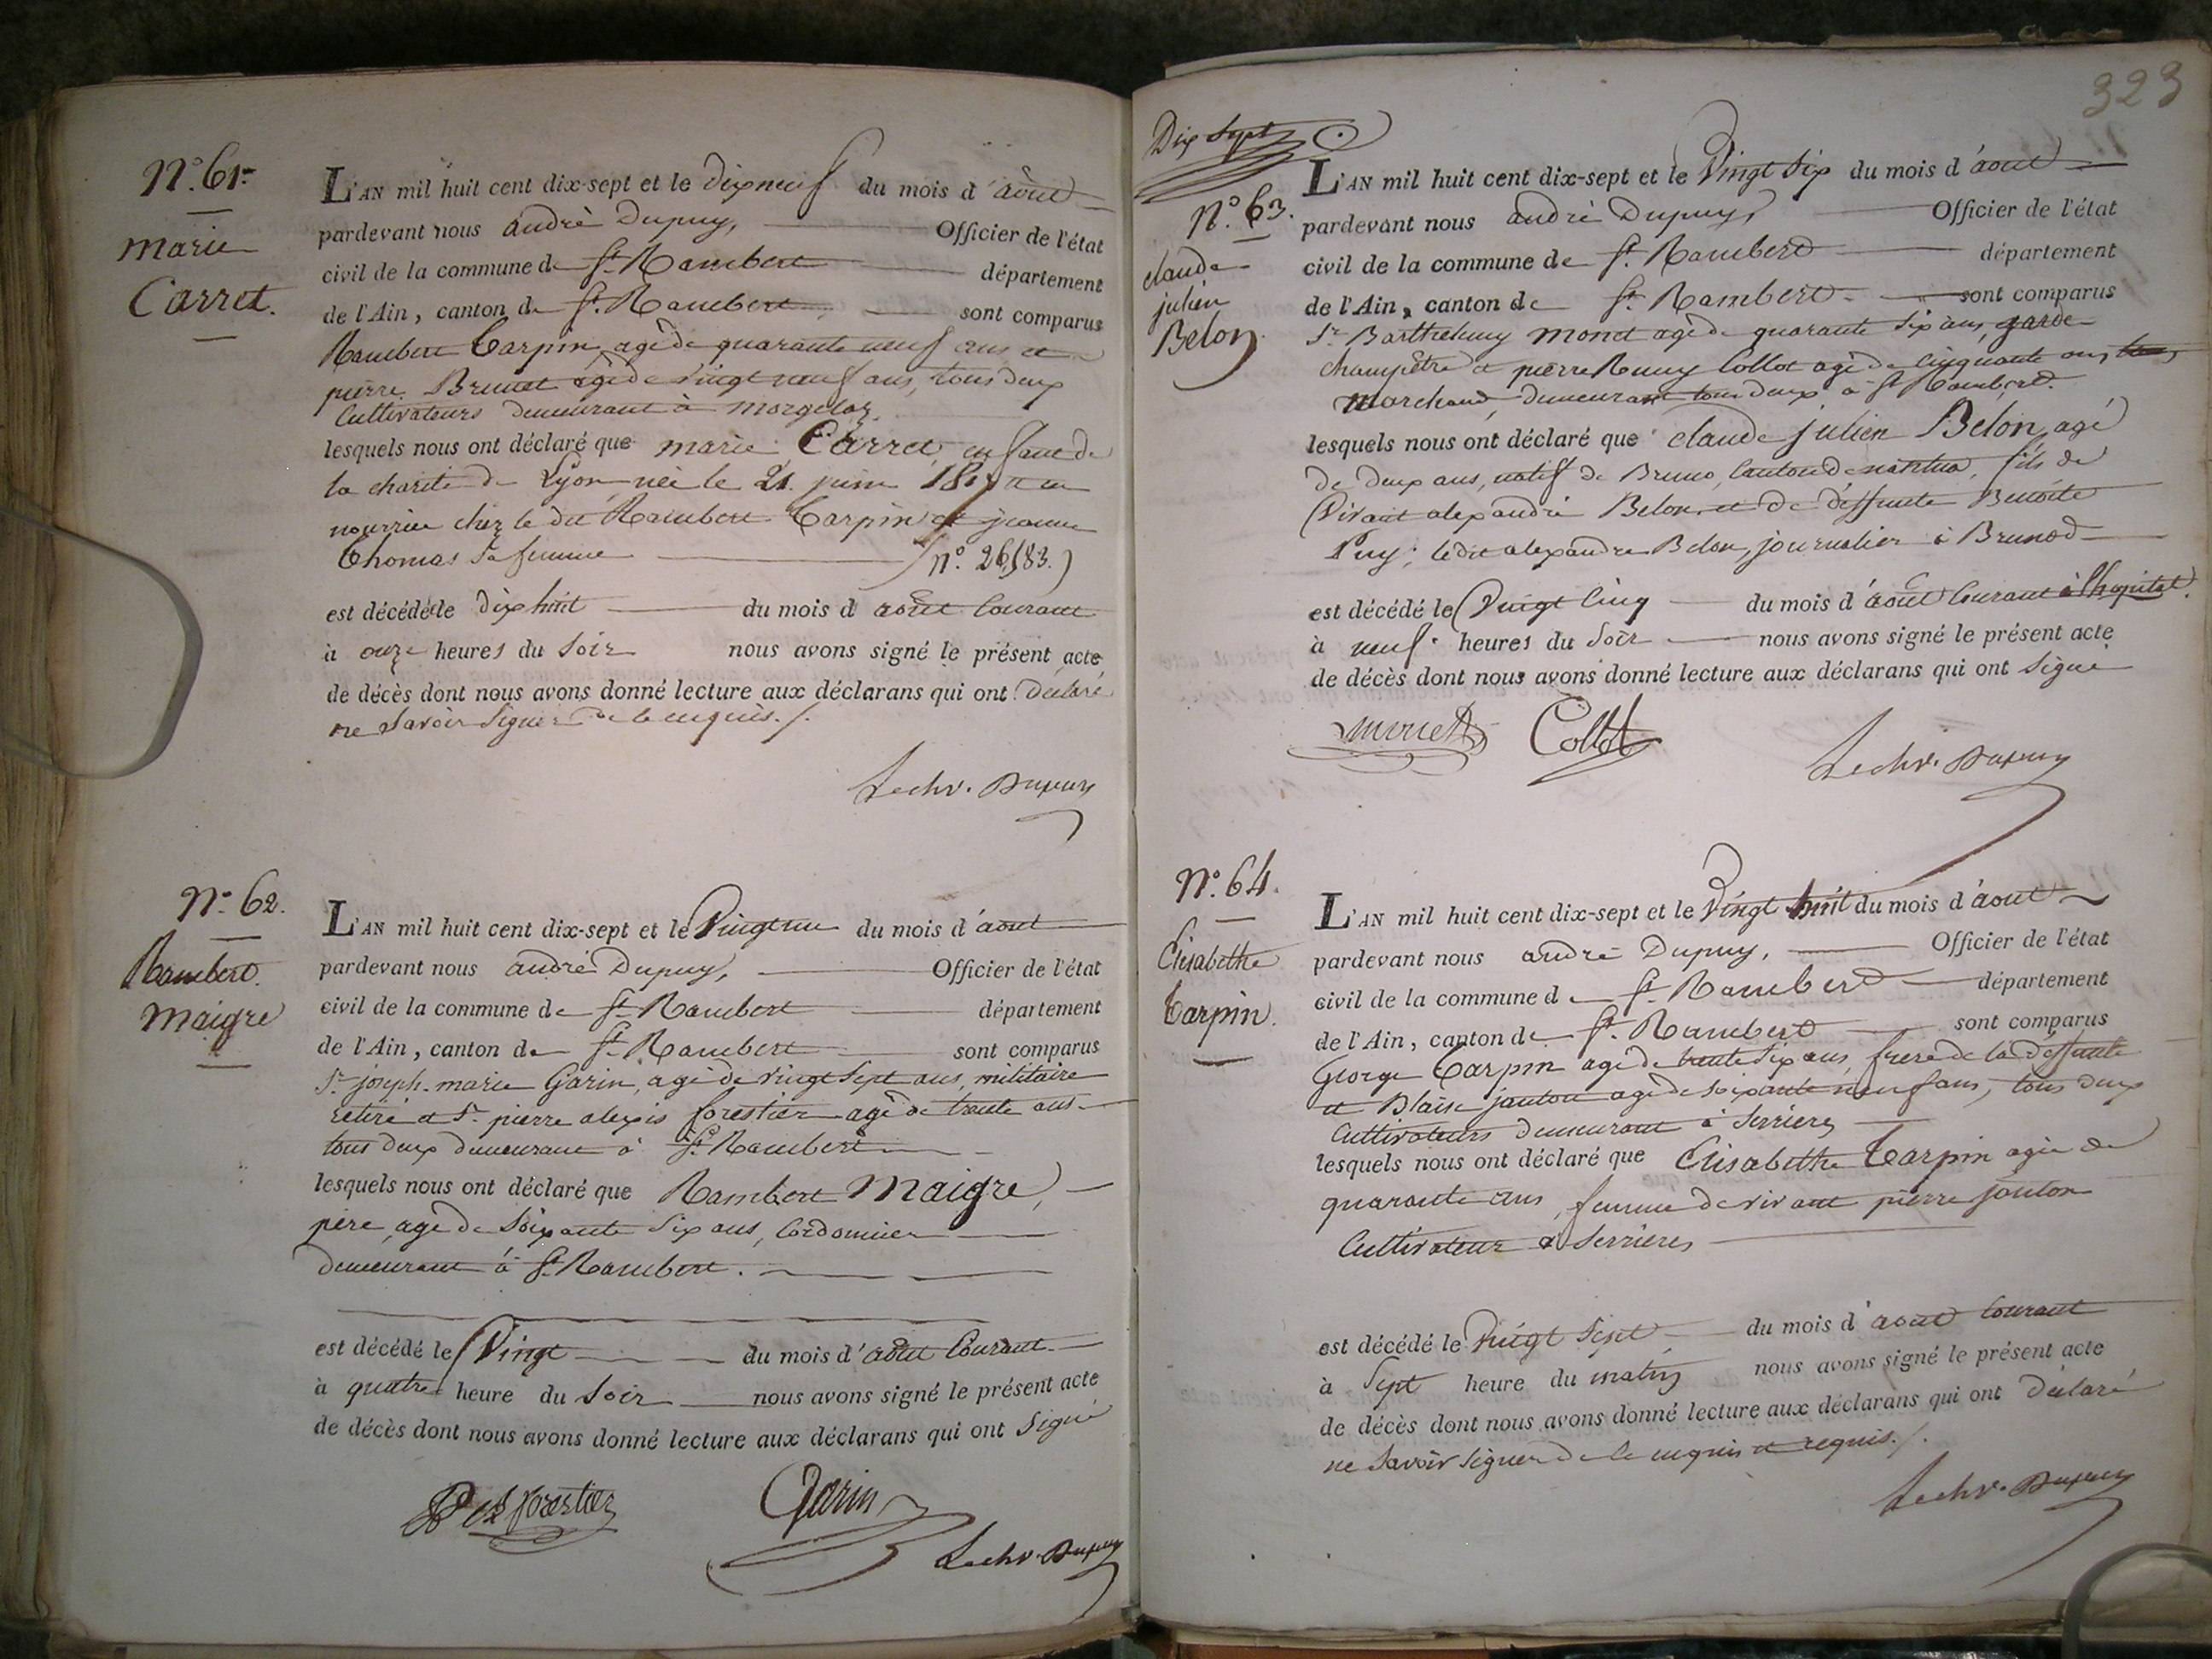 N.° 61.
Marie
Carret.
L'AN mil huit cent dix-sept et le dix neuf du mois d'août
pardevant nous andré Dupuy, Officier de l'état
civil de la commune de St. Rambert département
de l'Ain, canton de St. Rambert sont comparus
Rambert Tarpin, agé de quarante neuf ans et
pierre Brunet agé de vingt neuf ans, tous deux
Cultivateurs demeurant à morgelas
lesquels nous ont déclaré que marie Carret, enfant de
la charité de Lyon née le 21. juin en
nourrice chez le dit Rambert Tarpin et jeanne
Thomas sa femme (n.° 26,183.)
est décédée le dix huit du mois d'août Courant
à onze heures du soir nous avons signé le présent acte
de décès dont nous avons donné lecture aux déclarans qui ont déclaré
ne savoir signer de ce enquis./.
Lechr. Dupuy
N.° 62.
Rambert
Maigre
L'AN mil huit cent dix-sept et le Vingt un du mois d'août
pardevant nous andré Dupuy, Officier de l'état
civil de la commune de St. Rambert département
de l'Ain, canton de St. Rambert sont comparus
Sr. joseph-marie Garin, agé de vingt sept ans, militaire
retiré et Sr. pierre alexis forestier agé de trente ans
tous deux demeurant à St. Rambert
lesquels nous ont déclaré que Rambert Maigre,
père, agé de soixante six ans, Cordonnier
demeurant à St. Rambert.
est décédé le Vingt du mois d'août Courant
à quatre heure du soir nous avons signé le présent acte
de décès dont nous avons donné lecture aux déclarans qui ont signé
forestier Garin
Lechr. Dupuy
323
Dix sept
N.° 63.
claude
julien
Belon
L'AN mil huit cent dix-sept et le Vingt six du mois d'août
pardevant nous andré Dupuy, Officier de l'état
civil de la commune de St. Rambert département
de l'Ain, canton de St. Rambert sont comparus
Sr. Barthelemy monet agé de quarante six ans, garde
champêtre et pierre Remy Collot agé de Cinquante ans,
marchand, demeurant tous deux à St. Rambert.
lesquels nous ont déclaré que claude julien Belon, agé
de deux ans, natif de Bruno, Canton de nantua, fils de
Vivant alexandre Belon, et de deffunte Benoite
Puy; ledit alexandre Belon, journalier à Brunod
est décédé le Vingt Cinq du mois d'août Courant à l'hopital.
à neuf heures du soir nous avons signé le présent acte
de décès dont nous avons donné lecture aux déclarans qui ont signé
monet Collot
Lechr. Dupuy
N.° 64.
Elisabethe
Tarpin.
L'AN mil huit cent dix-sept et le Vingt huit du mois d'août
pardevant nous andré Dupuy, Officier de l'état
civil de la commune de St. Rambert département
de l'Ain, canton de St. Rambert sont comparus
George Tarpin agé de trente six ans, frere de la deffunte
et Blaise janton agé de soixante neuf ans, tous deux
Cultivateurs demeurant à serrieres
lesquels nous ont déclaré que Elisabethe Tarpin agée de
quarante ans, femme de vivant pierre janton
Cultivateur à serrieres
est décédé le Vingt sept du mois d'août Courant
à sept heure du matin nous avons signé le présent acte
de décès dont nous avons donné lecture aux déclarans qui ont déclaré
ne savoir signer de ce enquis et requis./.
Lechr. Dupuy